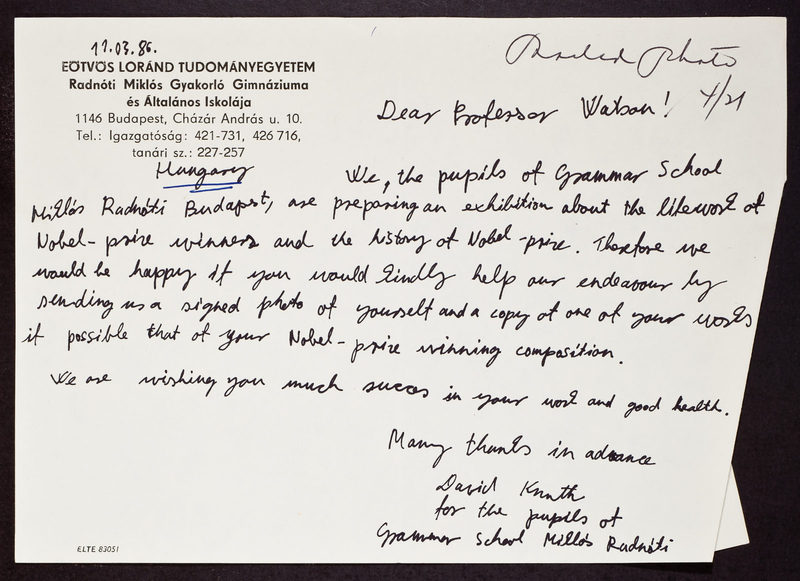 11.03.86.
EÖTVÖS LORÁND TUDOMÁNYEGYETEM
Radnóti Miklós Gyakorló Gimnáziuma
és Általános Iskolája
1146 Budapest, Cházár András u. 10.
Tel.: Igazgatóság: 421-731, 426 716,
tanári sz.: 227-257
Hungary
Mailed photo
4/21
Dear Professor Watson!
We, the pupils of Grammar School
Miklós Radnóti Budapest, are preparing an exhibition about the lifework of
Nobel-prize winners and the history of Nobel-prize. Therefore we
would be happy if you would kindly help our endeavour by
sending us a signed photo of yourself and a copy of one of your works
if possible that of your Nobel-prize winning composition.
We are wishing you much succes in your work and good health.
Many thanks in advance
David Knuth
for the pupils of
Grammar School Miklós Radnóti
ELTE 83051